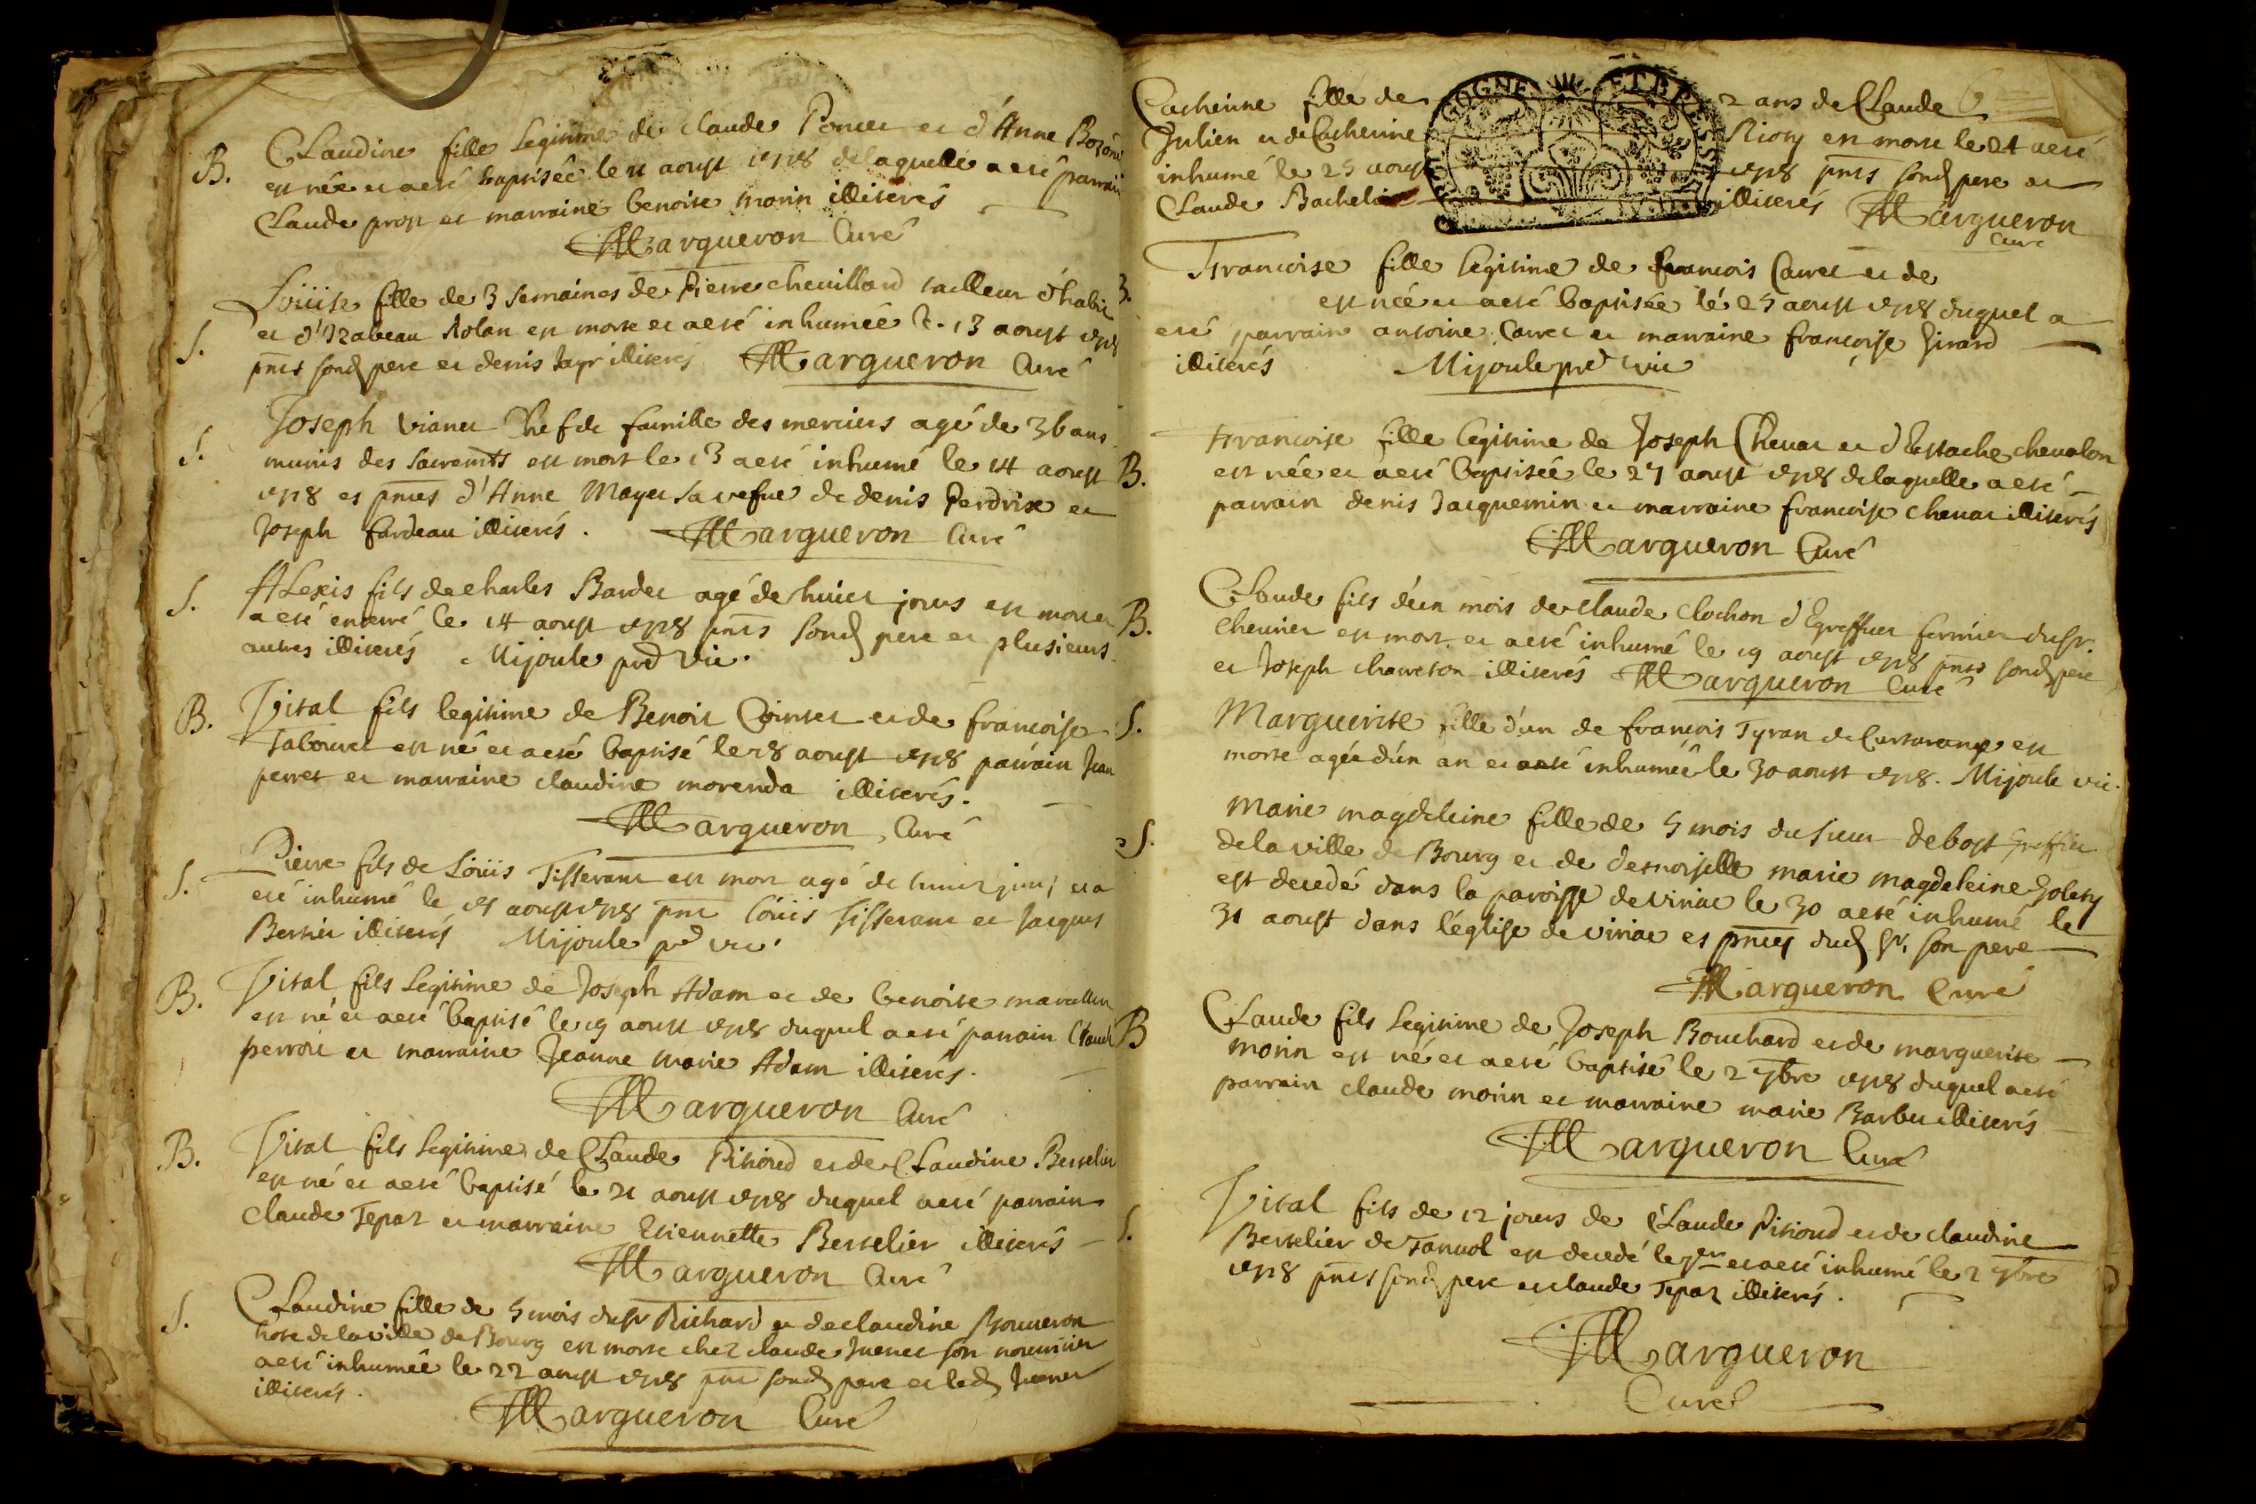 B. Claudine fille legitime de claude Poncet et d'Anne
est née et a esté baptisée le 11 aoust 1718 de laquelle a esté parrain
Claude prost et marraine benoite morin illiterés
Margueron Curé
Loüise fille de 3 semaines de Pierre chevillard tailleur d'habit
S. et d'Izabeau Rolan est morte et a esté inhumée le 13 aoust 1718
pnts sond pere et denis Jayr illiterés Margueron Curé
Joseph vianet Chef de famille des merciers agé de 36 ans
S. munis des sacremts est mort le 13 a esté inhumé le 14 aoust
1718 es pnces d'Anne Mayet sa vefue de denis Perdrix et
Joseph fardeau illiterés. Margueron Curé
S. ALexis fils de charles Bardet agé de huict jours est mort et
a esté enterré le 14 aoust 1718 pnts sond pere et plusieurs
autres illiterés Mijoule prd vic.
B. Vital fils legitime de Benoit Cointet et de francoise
Tabouret est né et a esté baptisé le 18 aoust 1718 parrain Jean
perret et marraine claudine morenda illiterés.
Margueron Curé
S. Pierre fils de Loüis Tisserant est mort agé de huict jours et a
esté inhumé le aoust 1718 pnt Loüis Tisserant et Jacques
Bertier illiterés Mijoule prd vic.
B. Vital fils legitime de Joseph Adam et de benoite
est né et a esté baptisé le 19 aoust 1718 duquel a esté parrain Claude
et marraine Jeanne marie Adam illiterés.
Margueron Curé
B. Vital fils legitime de CLaude Pitioud et de CLaudine Berselier
est né et a esté baptisé le 21 aoust 1718 duquel a esté parrain
claude Tepaz et marraine Etiennette Berselier illiterés
Margueron Curé
S. Claudine fille de 5 mois du sr Richard et de claudine
hote de la ville de Bourg est morte chez claude Juenet son nourricier
a esté inhumée le 22 aoust 1718 pnt sond pere et led Juenet
illiterés.
Margueron Curé
Catherine fille de 2 ans de CLaude
Julien et de Catherine est morte le 24 a esté
inhumé le 25 aoust 1718 pnts sond pere et
CLaude Bachelier illiterés Margueron
Curé
B. Francoise fille legitime de francois Carret et de
est née et a esté baptisée le 25 aoust 1718 duquel a
esté parrain antoine Carret et marraine francoise Girard
illiterés Mijoule prd vic
Francoise fille legitime de Joseph Chenat et d'Estache chevalon
B. est née et a esté baptisée le 27 aoust 1718 de laquelle a esté
parrain denis Jacquemin et marraine francoise chenat illiterés
Margueron Curé
B. CLaude fils d'un mois de claude Clochon d'Egreffuet fermier du sr.
chevrier est mort et a esté inhumé le aoust 1718 pnts sond pere
et Joseph illiterés Margueron Curé
S. Marguerite fille d'un de francois Tyran de est
morte agée d'un an et a esté inhumée le 30 aoust 1718. Mijoule vic.
S. Marie magdeleine fille de 5 mois du sieur debost greffier
de la ville de Bourg et de demoiselle marie magdeleine
est decedé dans la paroisse de viriat le 30 a esté inhumé le
31 aoust dans l'église de viriat es pnces dud sr. son pere
Margueron Curé
B Claude fils legitime de Joseph Bouchard et de marguerite
morin est né et a esté baptisé le 2 7bre 1718 duquel a esté
parrain claude morin et marraine marie Barbet illiterés
Margueron Curé
S. Vital fils de 12 jours de CLaude Pitioud et de claudine
Berselier de Tanvol est decedé le 1er et a esté inhumé le 2 7bre
1718 pnts sond pere et claude Tepaz illiterés.
Margueron
Curé